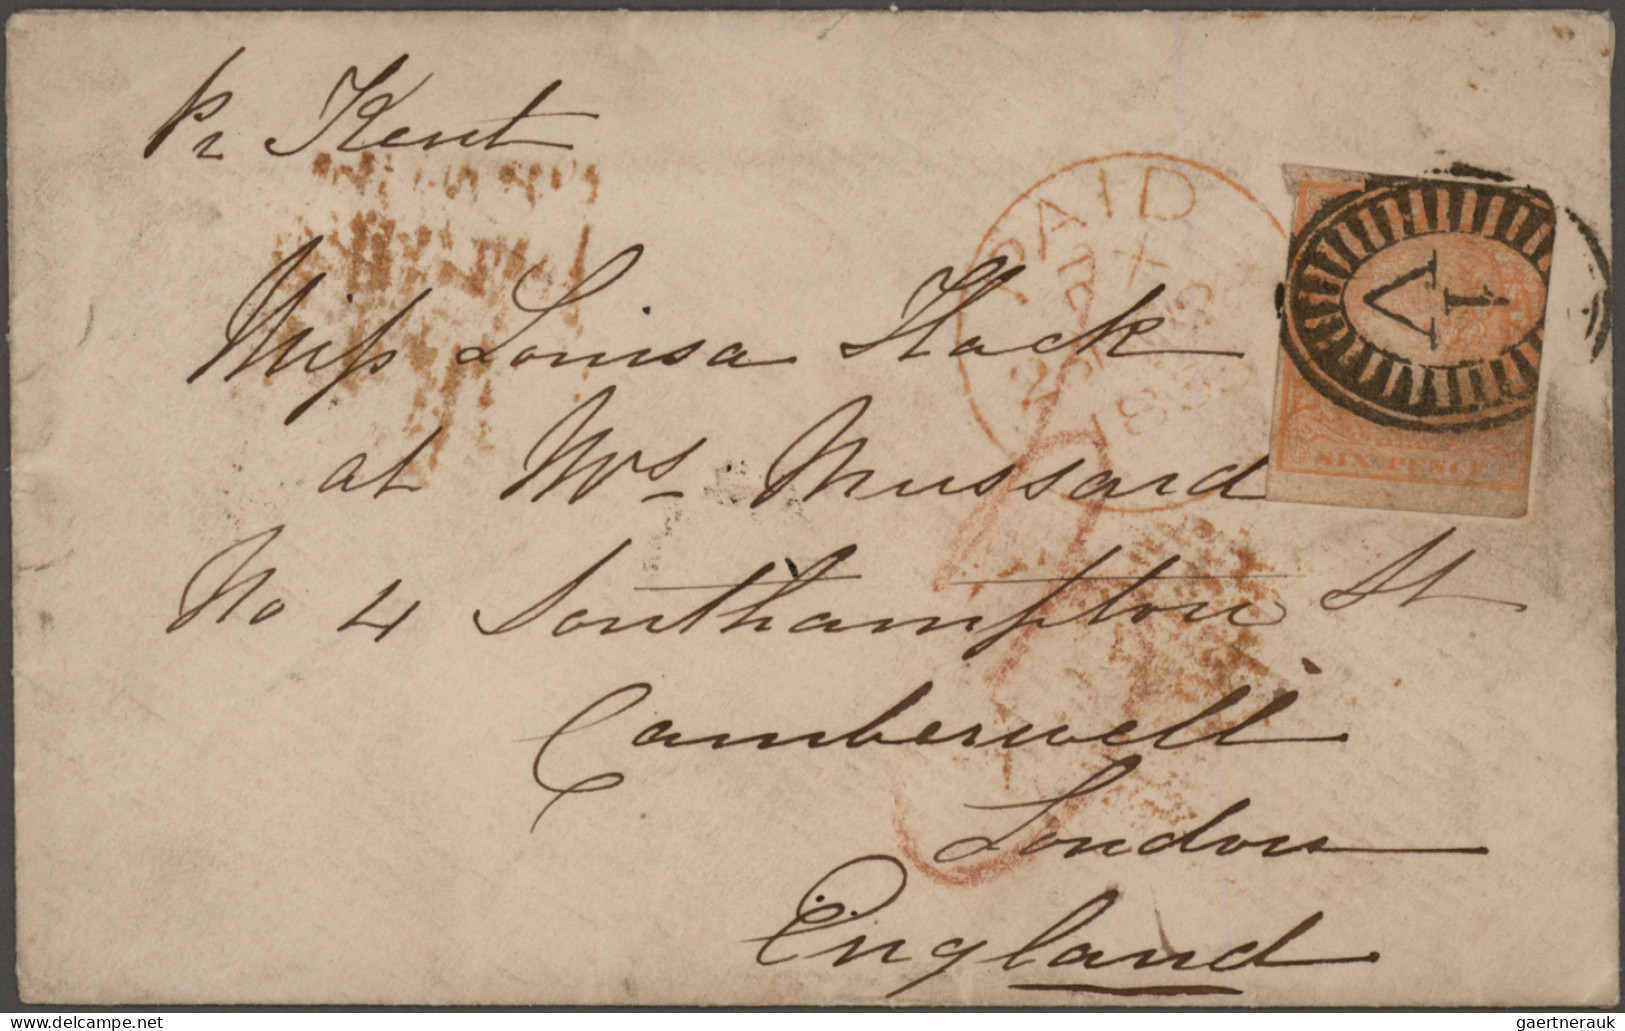 pr Kent
Miss Louisa Hack
at Mrs Mussard
No 4 Southampton St
Camberwell
London
England
PAID
1
V
SIX PENCE
delcampe.net
gaertnerauk